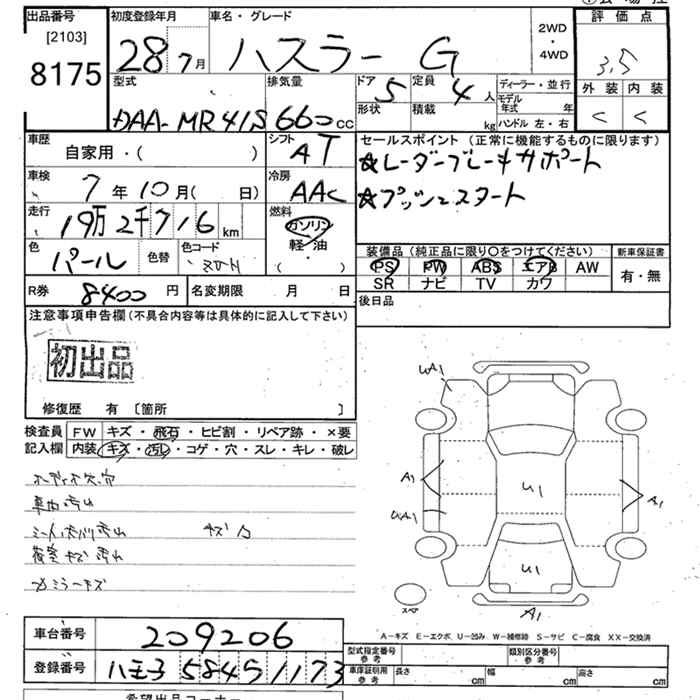 出品番号 初度登録年月 車名・グレード 2WD・4WD 評価点
[2103]
8175 28年7月 ハスラー G 3.5
型式 排気量 ドア 5 定員 4人 ディーラー・並行 外装 内装
DAA-MR41S 660cc 形状 積載 kg モデル年式 年 ハンドル 左・右 < <
車歴 自家用・( ) シフト AT セールスポイント(正常に機能するものに限ります)
☆レーダーブレーキサポート
車検 7年10月( 日) 冷房 AAC ☆プッシュスタート
走行 19万2千716km 燃料 ガソリン
軽・油
色 パール 色替 色コード ( ) 装備品(純正品に限り○をつけてください) 新車保証書
PS PW ABS エアB AW 有・無
SR ナビ TV カワ
R券 8400円 名変期限 月 日 後日品
注意事項申告欄(不具合内容等は具体的に記入して下さい)
初出品
修復歴 有 〔箇所 〕
検査員 FW キズ・飛石・ヒビ割・リペア跡・×要
記入欄 内装 キズ・汚レ・コゲ・穴・スレ・キレ・破レ
車内汚れ
キズ
ミラーキズ
UA1
A1 U1 A1
UA1
U1
スペア A1
A-キズ E-エクボ U-凹み W-補修跡 S-サビ C-腐食 XX-交換済
車台番号 209206 型式指定番号 参考 類別区分番号 参考
登録番号 八王子 584 う 1173 車庫証明用 参考 長さ cm 幅 cm 高さ cm
希望出品コーナー